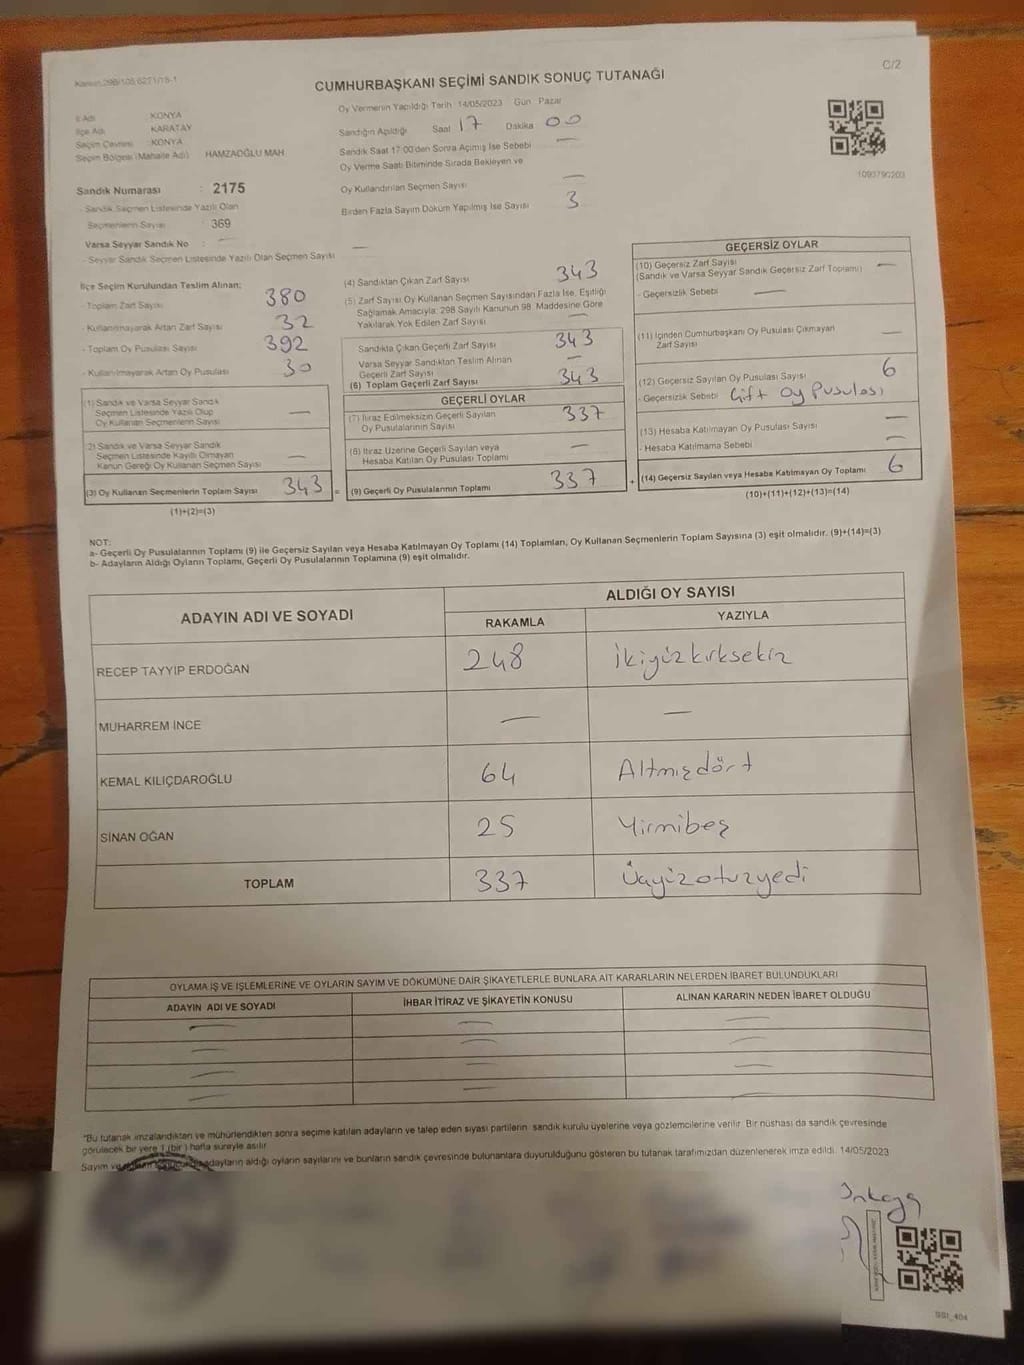 Kanun 298/105 6271/18-1
C/2
CUMHURBAŞKANI SEÇİMİ SANDIK SONUÇ TUTANAĞI
İl Adı : KONYA
İlçe Adı : KARATAY
Seçim Çevresi : KONYA
Seçim Bölgesi (Mahalle Adı) : HAMZAOĞLU MAH.
Sandık Numarası : 2175
- Sandık Seçmen Listesinde Yazılı Olan
Seçmenlerin Sayısı : 369
Varsa Seyyar Sandık No : —
- Seyyar Sandık Seçmen Listesinde Yazılı Olan Seçmen Sayısı —
Oy Vermenin Yapıldığı Tarih 14/05/2023 Gün Pazar
Sandığın Açıldığı Saat 17 Dakika 00
Sandık Saat 17:00'den Sonra Açımış İse Sebebi —
Oy Verme Saati Bitiminde Sırada Bekleyen ve
Oy Kullandırılan Seçmen Sayısı —
Birden Fazla Sayım Döküm Yapılmış İse Sayısı 3
1093790203
İlçe Seçim Kurulundan Teslim Alınan:
- Toplam Zarf Sayısı 380
- Kullanılmayarak Artan Zarf Sayısı 32
- Toplam Oy Pusulası Sayısı 392
- Kullanılmayarak Artan Oy Pusulası 30
(1) Sandık ve Varsa Seyyar Sandık
Seçmen Listesinde Yazılı Olup
Oy Kullanan Seçmenlerin Sayısı —
2) Sandık ve Varsa Seyyar Sandık
Seçmen Listesinde Kayıtlı Olmayan
Kanun Gereği Oy Kullanan Seçmen Sayısı —
(3) Oy Kullanan Seçmenlerin Toplam Sayısı 343 =
(1)+(2)=(3)
(4) Sandıktan Çıkan Zarf Sayısı 343
(5) Zarf Sayısı Oy Kullanan Seçmen Sayısından Fazla İse, Eşitliği
Sağlamak Amacıyla; 298 Sayılı Kanunun 98. Maddesine Göre
Yakılarak Yok Edilen Zarf Sayısı —
Sandıkta Çıkan Geçerli Zarf Sayısı 343
Varsa Seyyar Sandıktan Teslim Alınan
Geçerli Zarf Sayısı —
(6) Toplam Geçerli Zarf Sayısı 343
GEÇERLİ OYLAR
(7) İtiraz Edilmeksizin Geçerli Sayılan
Oy Pusulalarının Sayısı 337
(8) İtiraz Üzerine Geçerli Sayılan veya
Hesaba Katılan Oy Pusulası Toplamı —
(9) Geçerli Oy Pusulalarının Toplamı 337 +
GEÇERSİZ OYLAR
(10) Geçersiz Zarf Sayısı —
(Sandık ve Varsa Seyyar Sandık Geçersiz Zarf Toplamı)
- Geçersizlik Sebebi —
(11) İçinden Cumhurbaşkanı Oy Pusulası Çıkmayan
Zarf Sayısı —
(12) Geçersiz Sayılan Oy Pusulası Sayısı 6
- Geçersizlik Sebebi Çift Oy Pusulası
(13) Hesaba Katılmayan Oy Pusulası Sayısı —
- Hesaba Katılmama Sebebi —
(14) Geçersiz Sayılan veya Hesaba Katılmayan Oy Toplamı 6
(10)+(11)+(12)+(13)=(14)
NOT:
a- Geçerli Oy Pusulalarının Toplamı (9) ile Geçersiz Sayılan veya Hesaba Katılmayan Oy Toplamı (14) Toplamları, Oy Kullanan Seçmenlerin Toplam Sayısına (3) eşit olmalıdır. (9)+(14)=(3)
b- Adayların Aldığı Oyların Toplamı, Geçerli Oy Pusulalarının Toplamına (9) eşit olmalıdır.
ADAYIN ADI VE SOYADI ALDIĞI OY SAYISI
RAKAMLA YAZIYLA
RECEP TAYYIP ERDOĞAN 248 İkiyüzkırksekiz
MUHARREM İNCE — —
KEMAL KILIÇDAROĞLU 64 Altmışdört
SİNAN OĞAN 25 Yirmibeş
TOPLAM 337 Üçyüzotuzyedi
OYLAMA İŞ VE İŞLEMLERİNE VE OYLARIN SAYIM VE DÖKÜMÜNE DAİR ŞİKAYETLERLE BUNLARA AİT KARARLARIN NELERDEN İBARET BULUNDUKLARI
ADAYIN ADI VE SOYADI İHBAR İTİRAZ VE ŞİKAYETİN KONUSU ALINAN KARARIN NEDEN İBARET OLDUĞU
— — —
— — —
— — —
— — 
"Bu tutanak imzalandıktan ve mühürlendikten sonra seçime katılan adayların ve talep eden siyasi partilerin sandık kurulu üyelerine veya gözlemcilerine verilir. Bir nüshası da sandık çevresinde
görülecek bir yere 1 (bir ) hafta süreyle asılır.
Sayım ve adayların aldığı oyların sayılarını ve bunların sandık çevresinde bulunanlara duyurulduğunu gösteren bu tutanak tarafımızdan düzenlenerek imza edildi. 14/05/2023